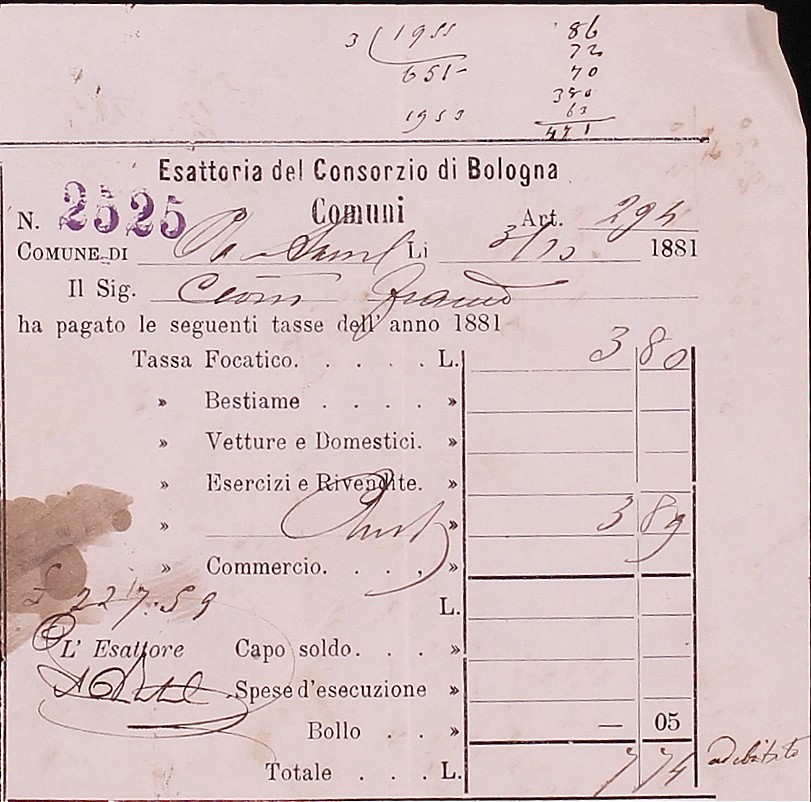 3 1955 86
651- 72
70
380
1953 63
471
Esattoria del Consorzio di Bologna
N. 2525 Comuni Art. 294
COMUNE DI Li 3/10 1881
Il Sig.
ha pagato le seguenti tasse dell' anno 1881
Tassa Focatico. . . . . L. 3 80
» Bestiame . . . . »
» Vetture e Domestici. »
» Esercizi e Rivendite. »
» » 3 89
» Commercio. . . . »
£ 227.59 L.
L' Esattore Capo soldo. . . »
Spese d'esecuzione »
Bollo . . » — 05
Totale . . . L. 7 74 adebitato